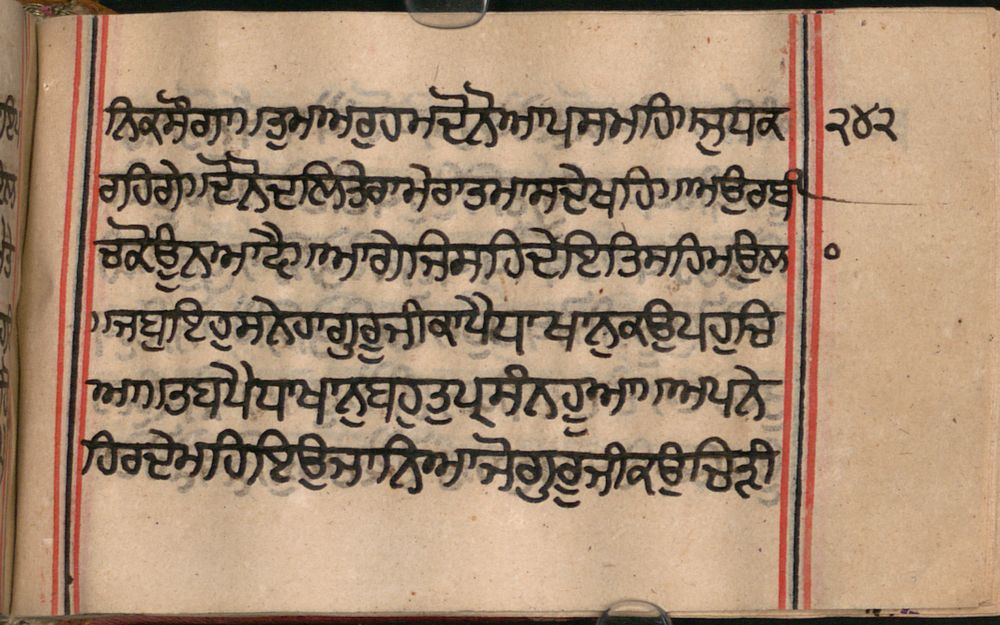 ਨਿਕਸੈਗਾ॥ਤੁਮਾਅਰੁਹਮਦੋਨੋਆਪਸਮਹਿਜੁਧਕ ੨੪੨
ਰਹਿਗੇ॥ਦੋਨੋਦਲਿਤੇਰਾਮੇਰਾਤਮਾਸਦੇਖਹਿ॥ਅਉਰਬੰ
ਚਕੋਊਨਆਵੈ॥ਆਗੇਜਿਸਹਿਦੇਇਤਿਸਹਿਮਉਲਾ ੦
॥ਜਬੁਇਹੁਸਨੇਹਾਗੁਰੂਜੀਕਾਪੈਧਾਖਾਨੁਕਉਪਹੁਚਿ
ਆ॥ਤਬਪੈਧਾਖਾਨੁਬਹੁਤੁਪ੍ਰਸੰਨਹੂਆ॥ਅਪਨੇ
ਹਿਰਦੇਮਹਿਇਉਜਾਨਿਆਜੋਗੁਰੂਜੀਕਉਚਿੜੀ